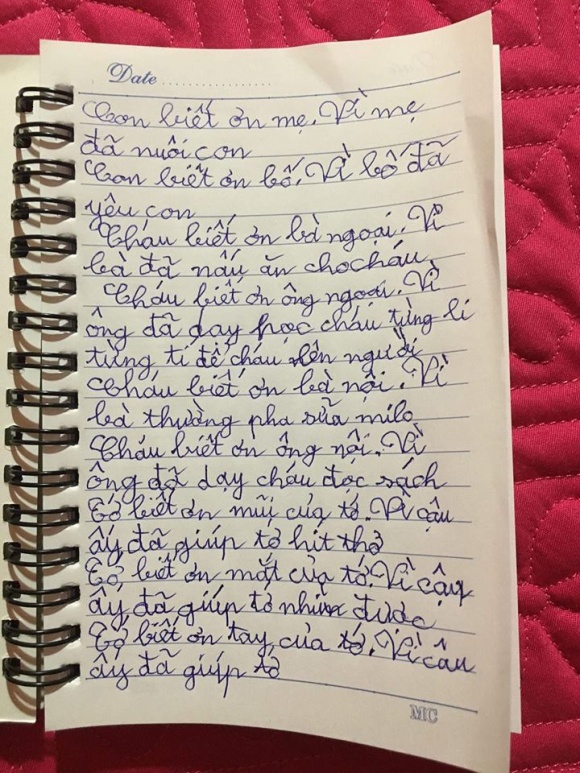 Date
Con biết ơn mẹ. Vì mẹ
đã nuôi con
Con biết ơn bố. Vì bố đã
yêu con
Cháu biết ơn bà ngoại. Vì
bà đã nấu ăn chocháu.
Cháu biết ơn ông ngoại. Vì
ông đã dạy học cháu từng li
từng tí để cháu lên người
Cháu biết ơn bà nội. Vì
bà thường pha sữa milo
Cháu biết ơn ông nội. Vì
ông đã dạy cháu đọc sách
Tớ biết ơn mũi của tớ. Vì cậu
ấy đã giúp tớ hít thở
Tớ biết ơn mắt của tớ. Vì cậu
ấy đã giúp tớ nhìn được
Tớ biết ơn tay của tớ. Vì cậu
ấy đã giúp tớ
MC